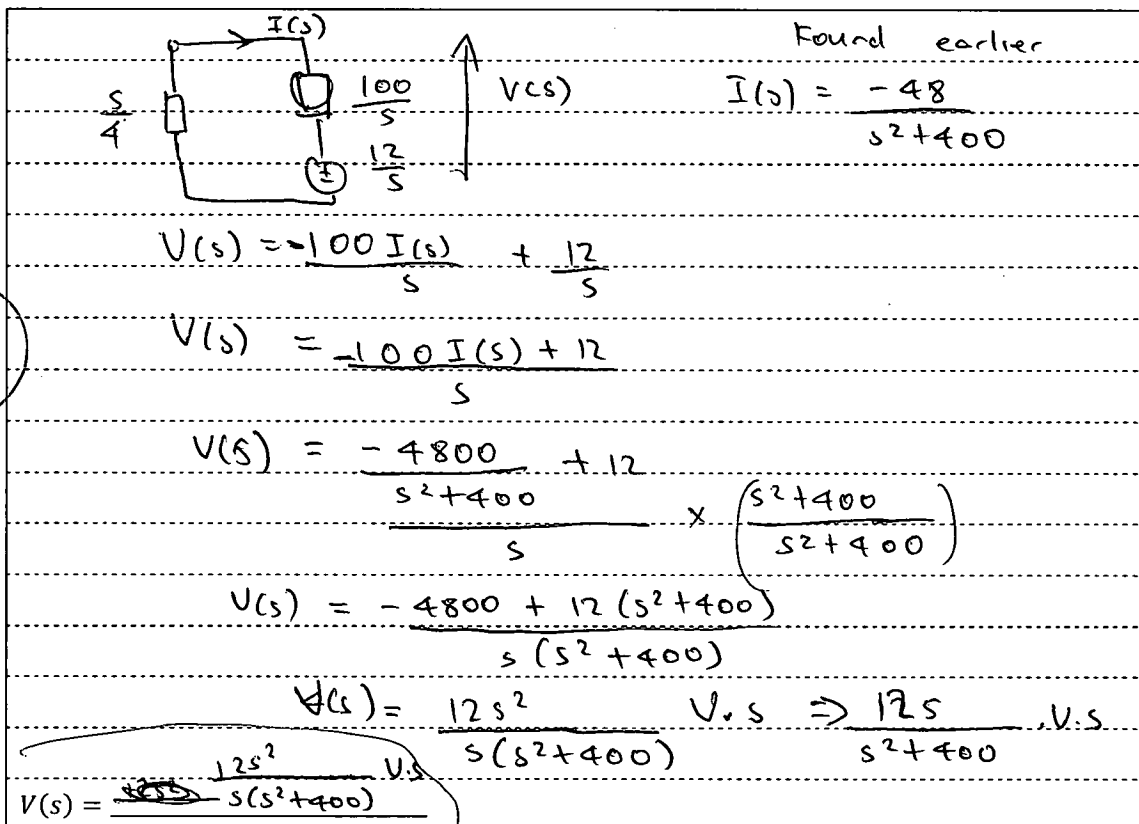 I(s) Found earlier
s/4 100/s V(s) I(s) = -48/(s²+400)
12/s
V(s) = -100 I(s)/s + 12/s
V(s) = (-100 I(s) + 12)/s
V(s) = (-4800/(s²+400) + 12)/s × ((s²+400)/(s²+400))
V(s) = (-4800 + 12(s²+400))/(s(s²+400))
V(s) = 12s²/(s(s²+400)) V.s ⇒ 12s/(s²+400) .V.s
V(s) = 12s²/(s(s²+400)) V.s